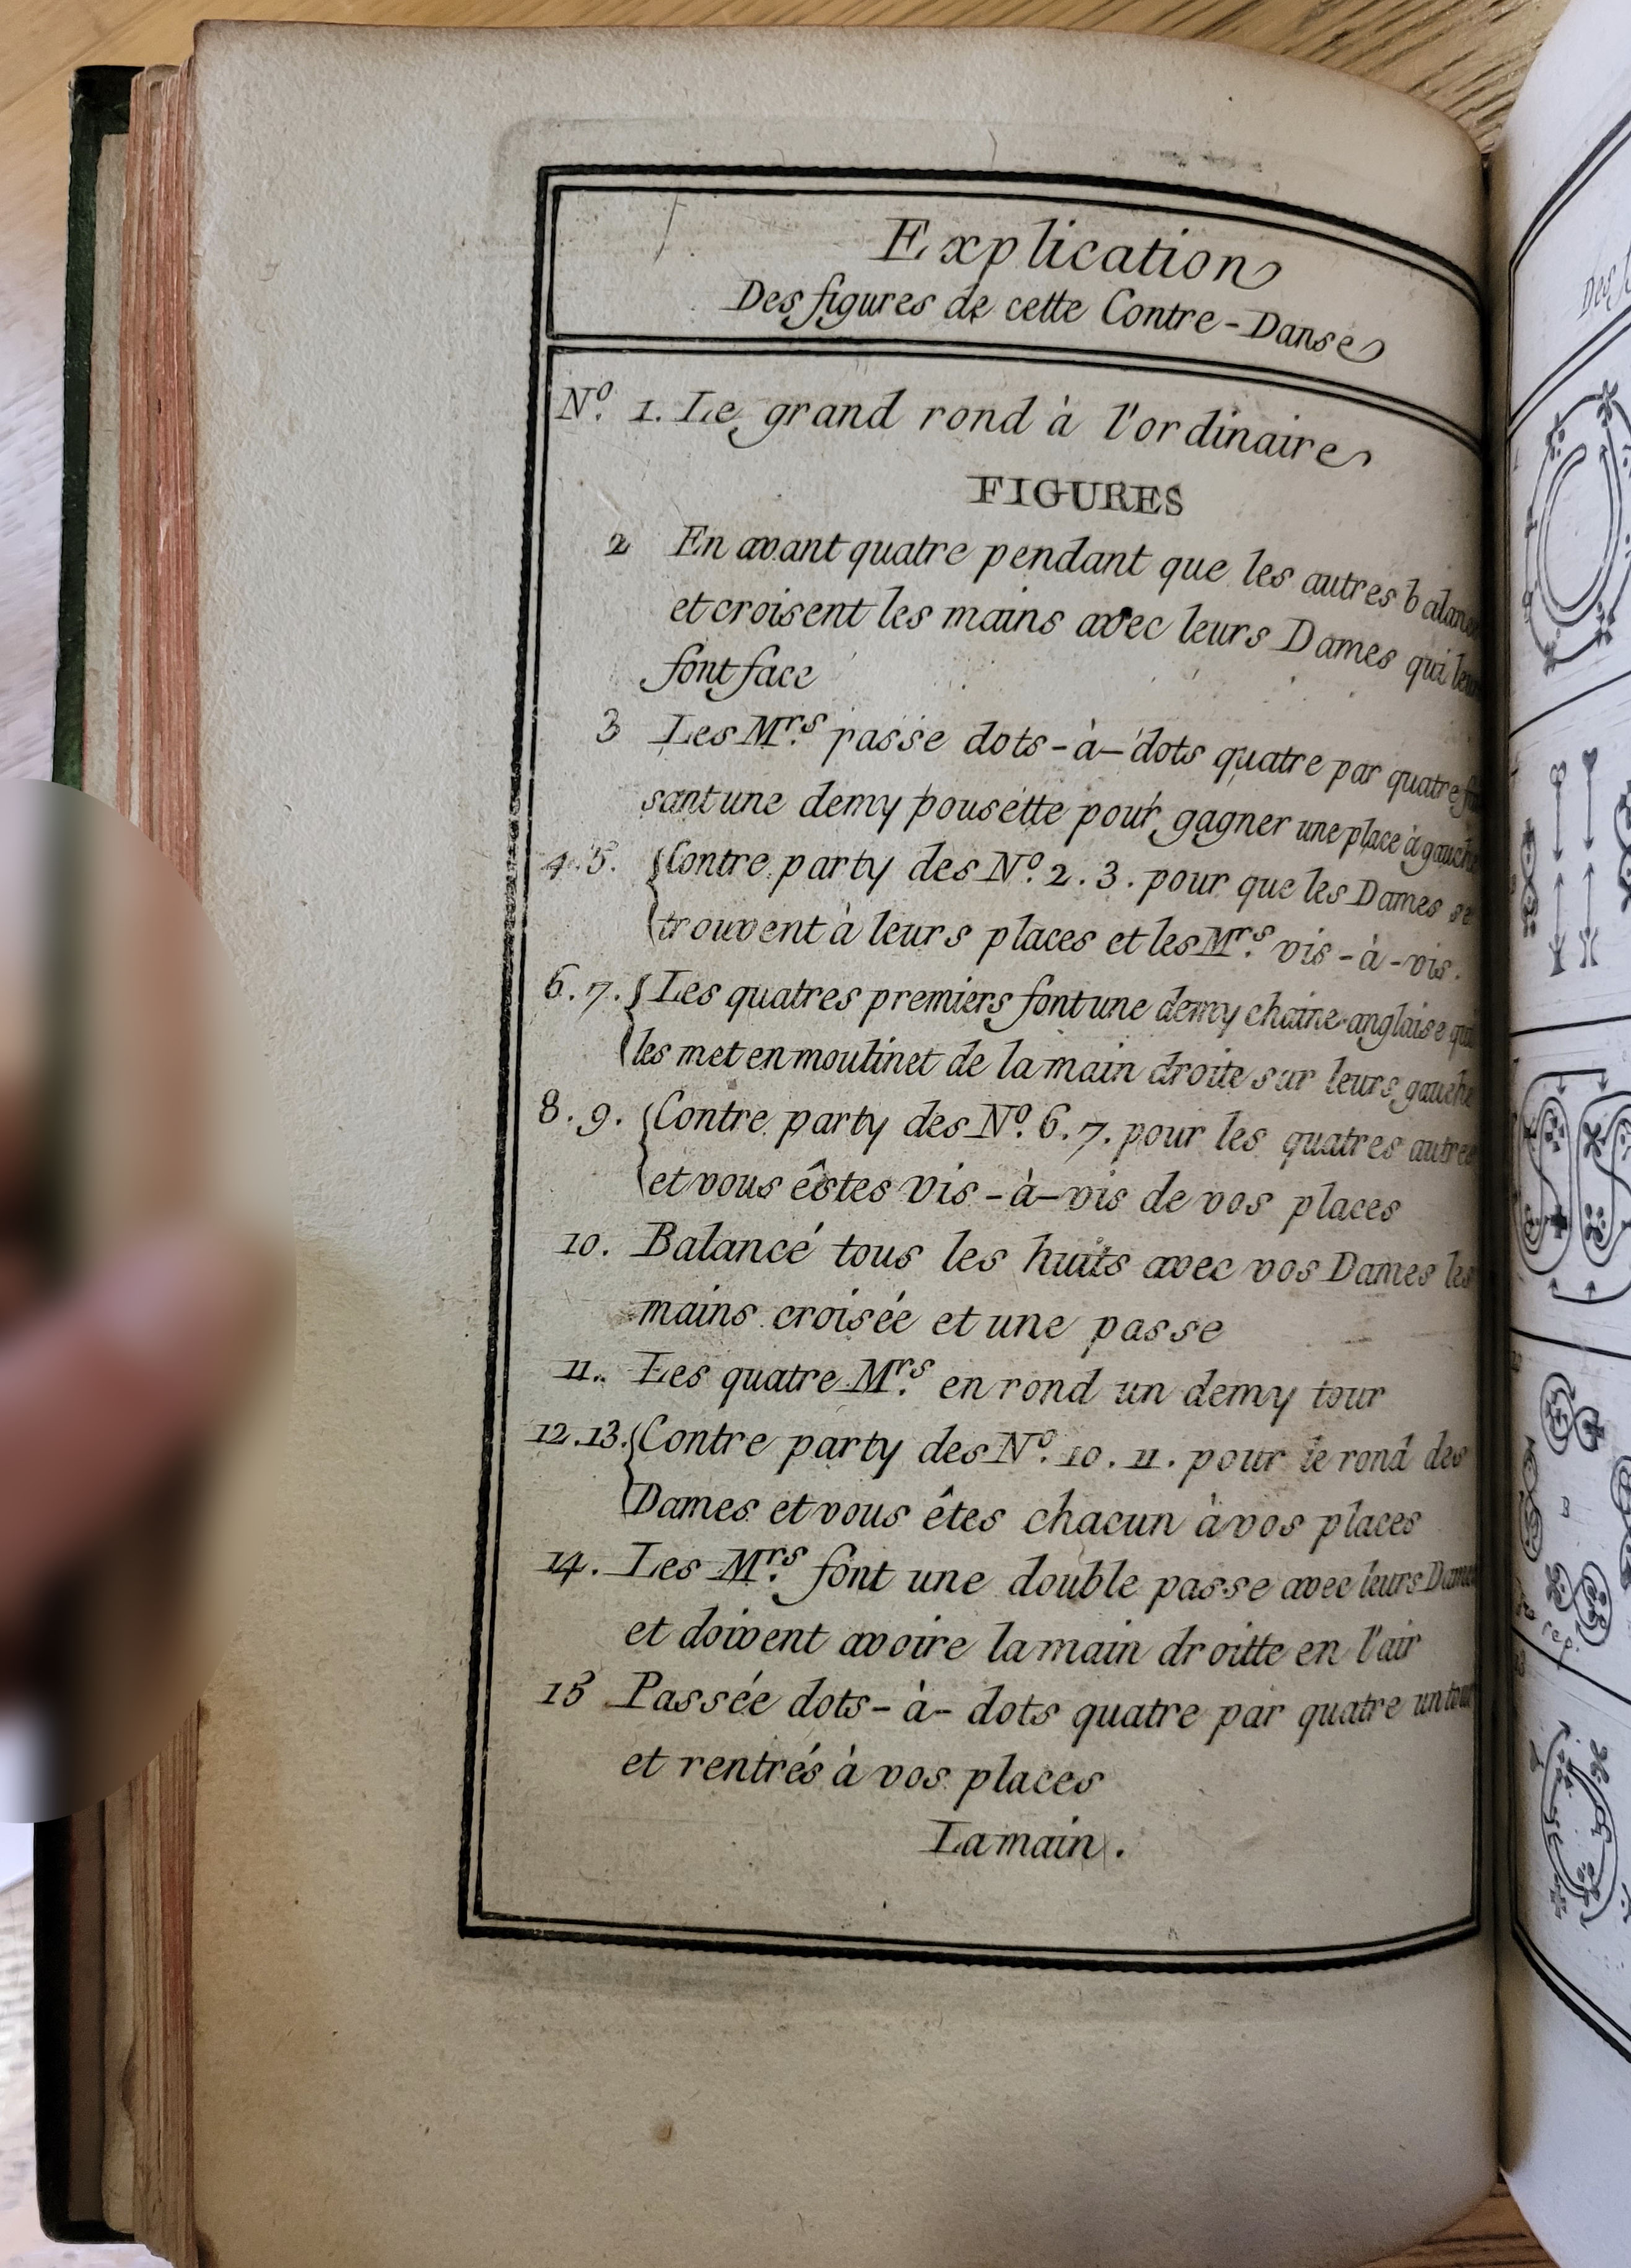 Explication
Des figures de cette Contre-Danse
N.º 1. Le grand rond à l'ordinaire
FIGURES
2 En avant quatre pendant que les autres
et croisent les mains avec leurs Dames qui
font face
3 Les M.rs passe dots-à-dots quatre par quatre
sant une demy pousette pour gagner une place à gauche
4.5. Contre party des N.º 2.3. pour que les Dames se
trouvent à leurs places et les M.rs vis-à-vis.
6.7. Les quatres premiers font une demy chaine-anglaise qui
les met en moulinet de la main droite sur leurs gauche
8.9. Contre party des N.º 6.7. pour les quatres autres
et vous êstes vis-à-vis de vos places
10. Balancé tous les huits avec vos Dames les
mains croisée et une passe
11. Les quatre M.rs en rond un demy tour
12.13. Contre party des N.º 10.11. pour le rond des
Dames et vous êtes chacun à vos places
14. Les M.rs font une double passe avec leurs
et doivent avoire la main droitte en l'air
15 Passée dots-à-dots quatre par quatre un tour
et rentrés à vos places
La main.